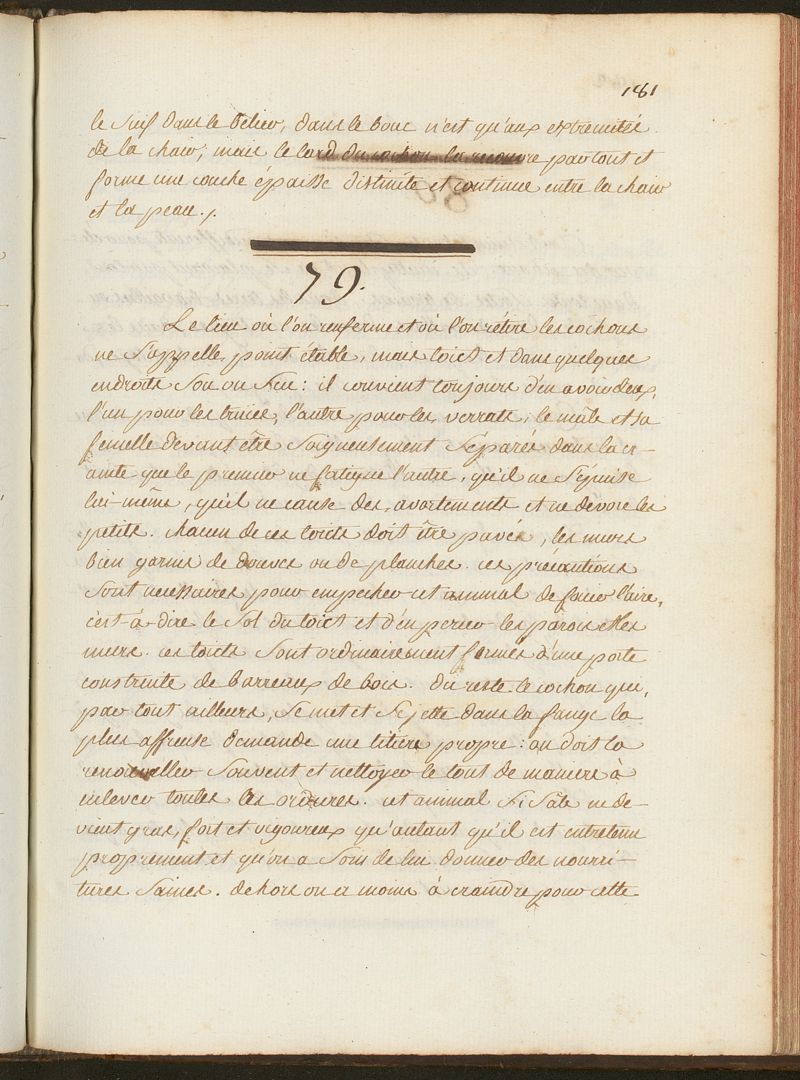 181
le suif dans le Bélier, dans le bouc n'est qu'aux extremités
de la chair; mais le lard du cochon la recouvre par tout et
forme une couche épaisse distincte et continue entre la chair
et la peau./.
79.
Le lieu où l'on renferme et où l'on rétire les cochons
ne s'appelle point étable, mais toict et dans quelques
endroits Sou ou Seu: il convient toujours d'en avoir deux,
l'un pour les truies, l'autre pour les verrats, le mâle et sa
femelle devant être soigneusement séparés dans la cr-
ainte que le premier ne fatigue l'autre, qu'il ne s'épuise
lui-même, qu'il ne cause des avortements et ne devore les
petits. chacun de ces toicts doit être pavés, les murs
bien garnis de douves ou de planches. ces précautions
sont necessaires pour empecher cet animal de fouir l'aire,
c'est-à-dire le sol du toict et d'en percer les parois et les
murs. ces toicts sont ordinairement fermés d'une porte
construite de barreaux de bois. du reste le cochon qui,
par tout ailleurs, se met et se jette dans la fange la
plus affreuse demande une litiere propre: on doit la
renouveller souvent et nettoyer le tout de maniere à
enlever toutes les ordures. cet animal si sâle ne de-
vient gras, fort et vigoureux qu'autant qu'il est entretenu
proprement et qu'on a soin de lui donner des nourri-
tures saines. dehors on a moins à craindre pour cette